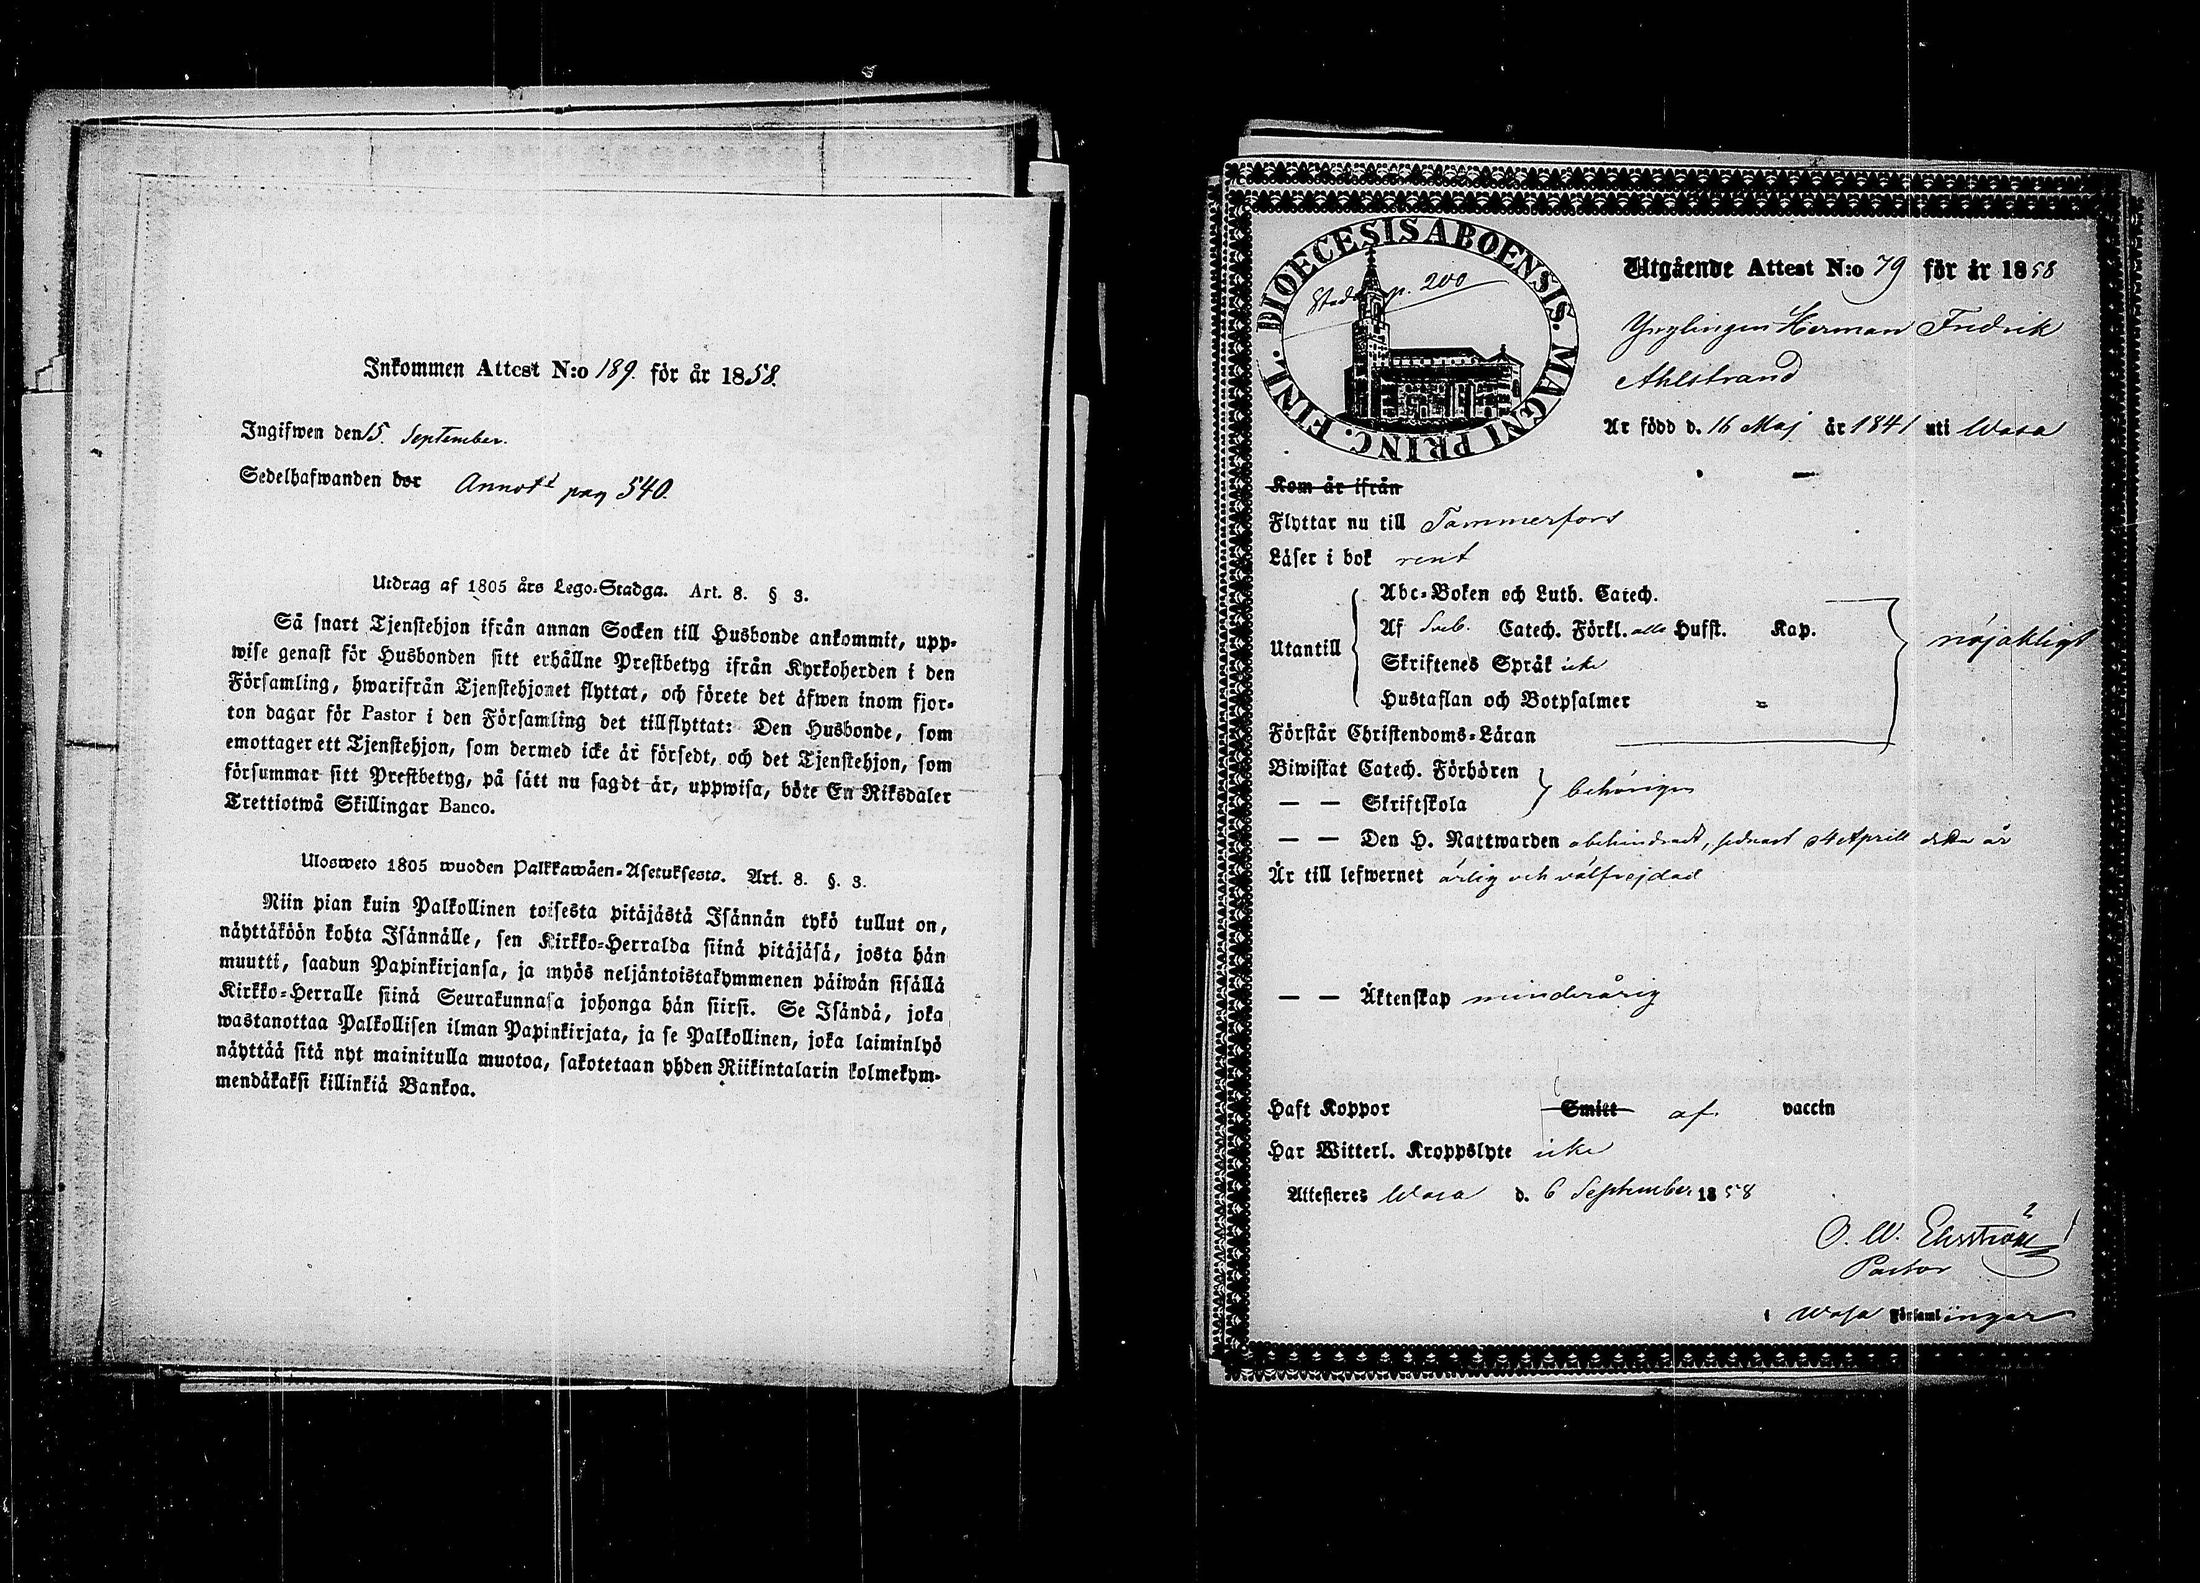 Inkommen Attest N:o 189. för år 1858.
Ingifwen den 15. September.
Sedelhafwanden bor Annot.d pag 540.
Utdrag af 1805 års Lego-Stadga. Art. 8. § 3.
Så snart Tjenstehjon ifrån annan Socken till Husbonde ankommit, upp-
wise genast för Husbonden sitt erhållne Prestbetyg ifrån Kyrkoherden i den
Församling, hwarifrån Tjenstehjonet flyttat, och förete det äfwen inom fjor-
ton dagar för Pastor i den Församling det tillflyttat: Den Husbonde, som
emottager ett Tjenstehjon, som dermed icke är försedt, och det Tjenstehjon, som
försummar sitt Prestbetyg, på sätt nu sagdt är, uppwisa, böte En Riksdaler
Trettiotwå Skillingar Banco.
Ulosweto 1805 wuoden Palkkawäen-Asetuksesta. Art. 8. §. 3.
Niin pian kuin Palkollinen toisesta pitäjästä Isännän tykö tullut on,
näyttäköön kohta Isännälle, sen Kirkko-Herralda siinä pitäjäsä, josta hän
muutti, saadun Papinkirjansa, ja myös neljäntoistakymmenen päiwän sisällä
Kirkko-Herralle siinä Seurakunnasa johonga hän siirsi. Se Isändä, joka
wastanottaa Palkollisen ilman Papinkirjata, ja se Palkollinen, joka laiminlyö
näyttää sitä nyt mainitulla muotoa, sakotetaan yhden Riikintalarin kolmekym-
mendäkaksi killinkiä Bankoa.
DIOECESIS ABOENSIS. MAGNI PRINC. FINL.
Stads p. 200
Utgående Attest N:o 79 för år 1858
Ynglingen Herman Fredrik
Ahlstrand
Är född d. 16 Maj år 1841 uti Wasa
Kom år ifrån
Flyttar nu till Tammerfors
Läser i bok rent
Utantill
Abc-Boken och Luth. Catech.
Af Sveb. Catech. Förkl. alla Hufst. Kap.
Skriftenes Språk icke
Hustaflan och Botpsalmer
nöjaktligt
Förstår Christendoms-Läran
Biwistat Catech. Förhören
— — Skriftskola
behörigen
— — Den H. Nattwarden obehindradt, sednast 4 Aprill detta år
Är till lefwernet ärlig och välfrejdad
— — Äktenskap minderårig
Haft Koppor Smitt af vaccin
Har Witterl. Kroppslyte icke
Attesteres Wasa d. 6 September 1858
O. W. Ehrström
Pastor
i Wasa Församlingar